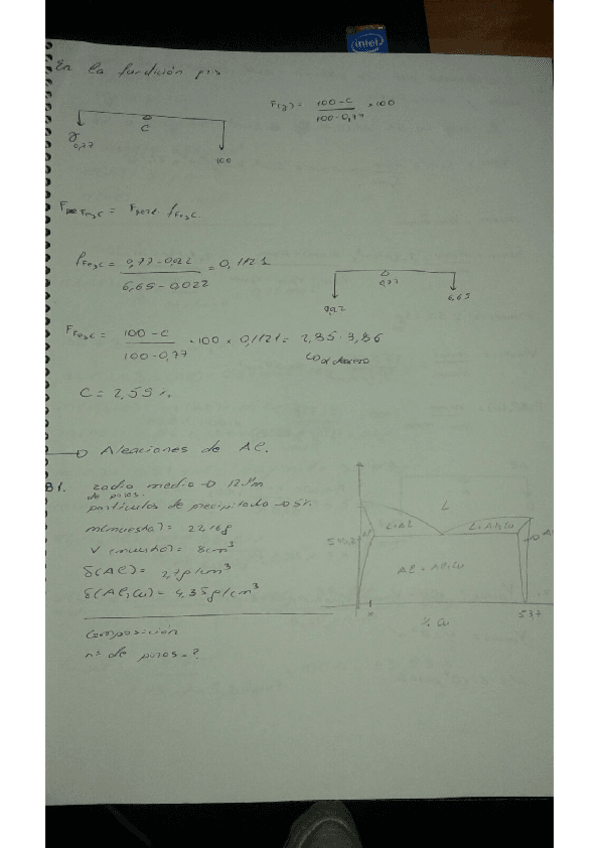 intel
En la fundición
F(γ) = 100-C / 100-0,77 × 100
γ 0,77 C 100
F Fe3C = F perl · f Fe3C
f Fe3C = 0,77-0,022 / 6,65-0,022 = 0,1121
0,77
6,65
F Fe3C = 100-C / 100-0,77 · 100 × 0,1121 = 2,85 · 3,86
C = 2,55 %
→ Aleaciones de Al.
radio medio → 12 μm
de poros.
partículas de precipitado → 5%
m(muestra) = 22,16g
V (muestra) = 8cm³
δ(Al) = 2,7g/cm³
δ(Al2Cu) = 4,35g/cm³
Composición
nº de poros = ?
L
L+Al
L+Al2Cu
Al + Al2Cu
x
% Cu